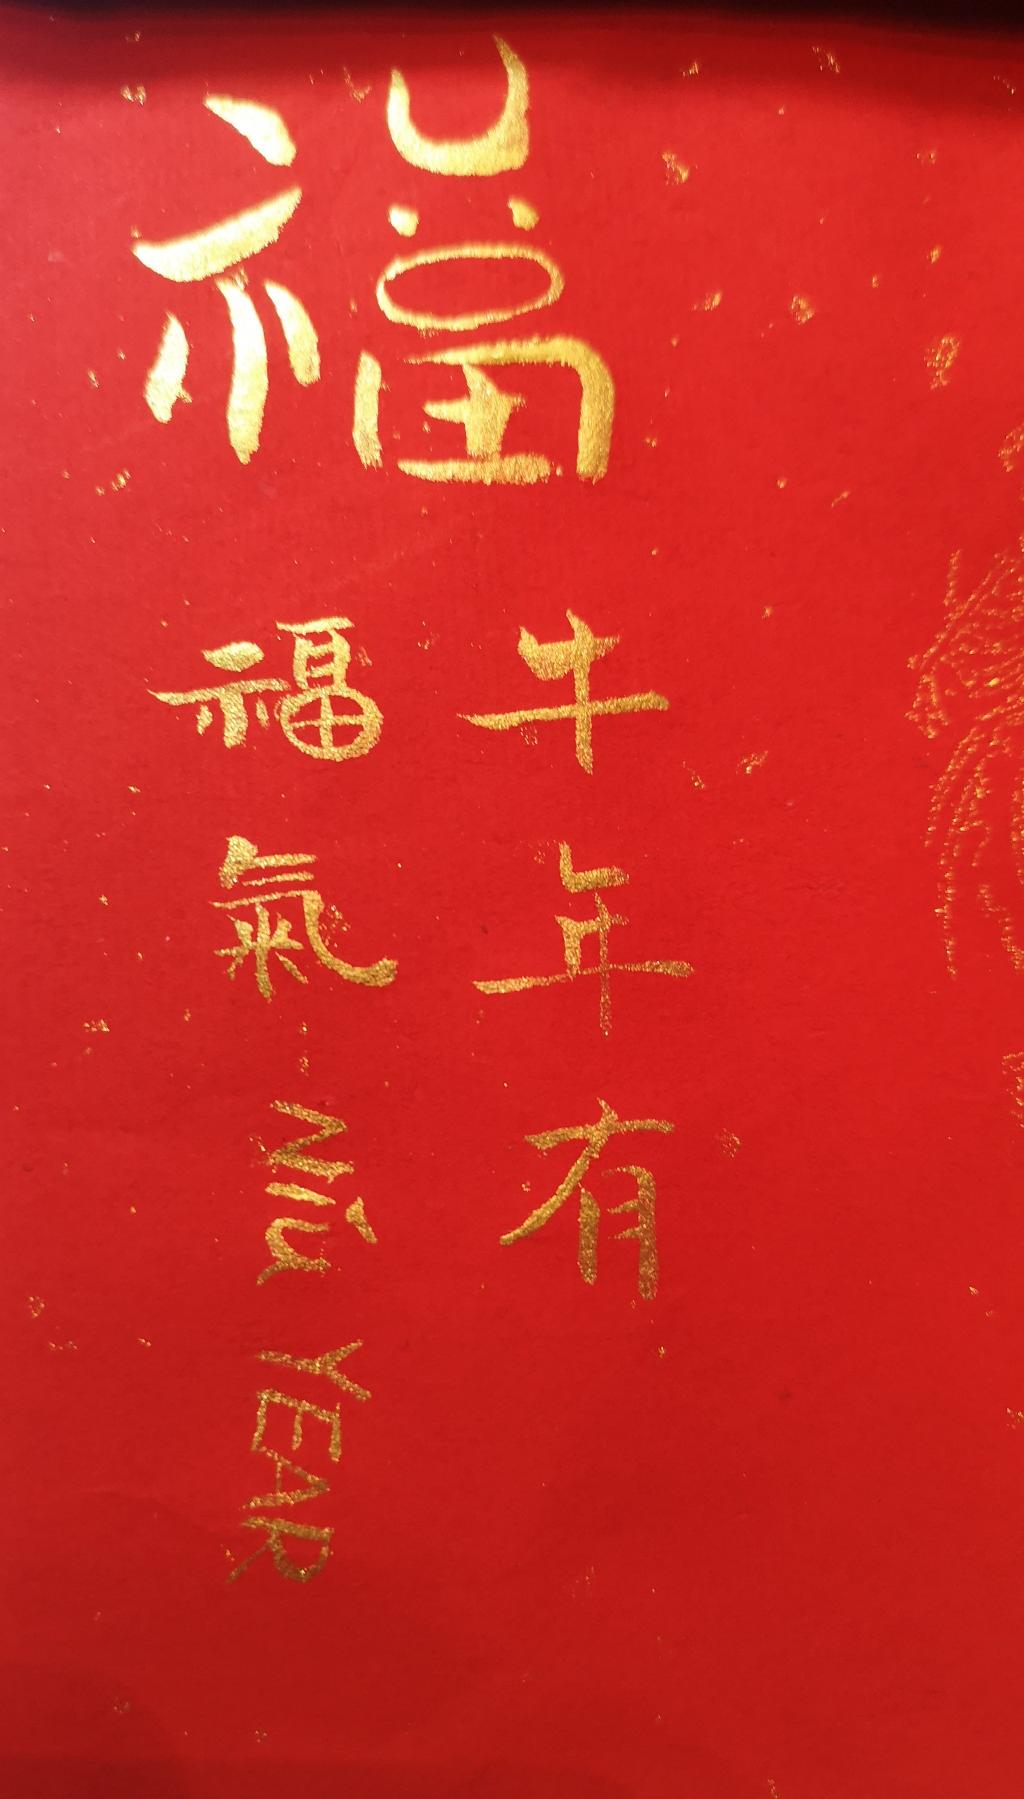 福
牛年有
福氣
NIú YEAR